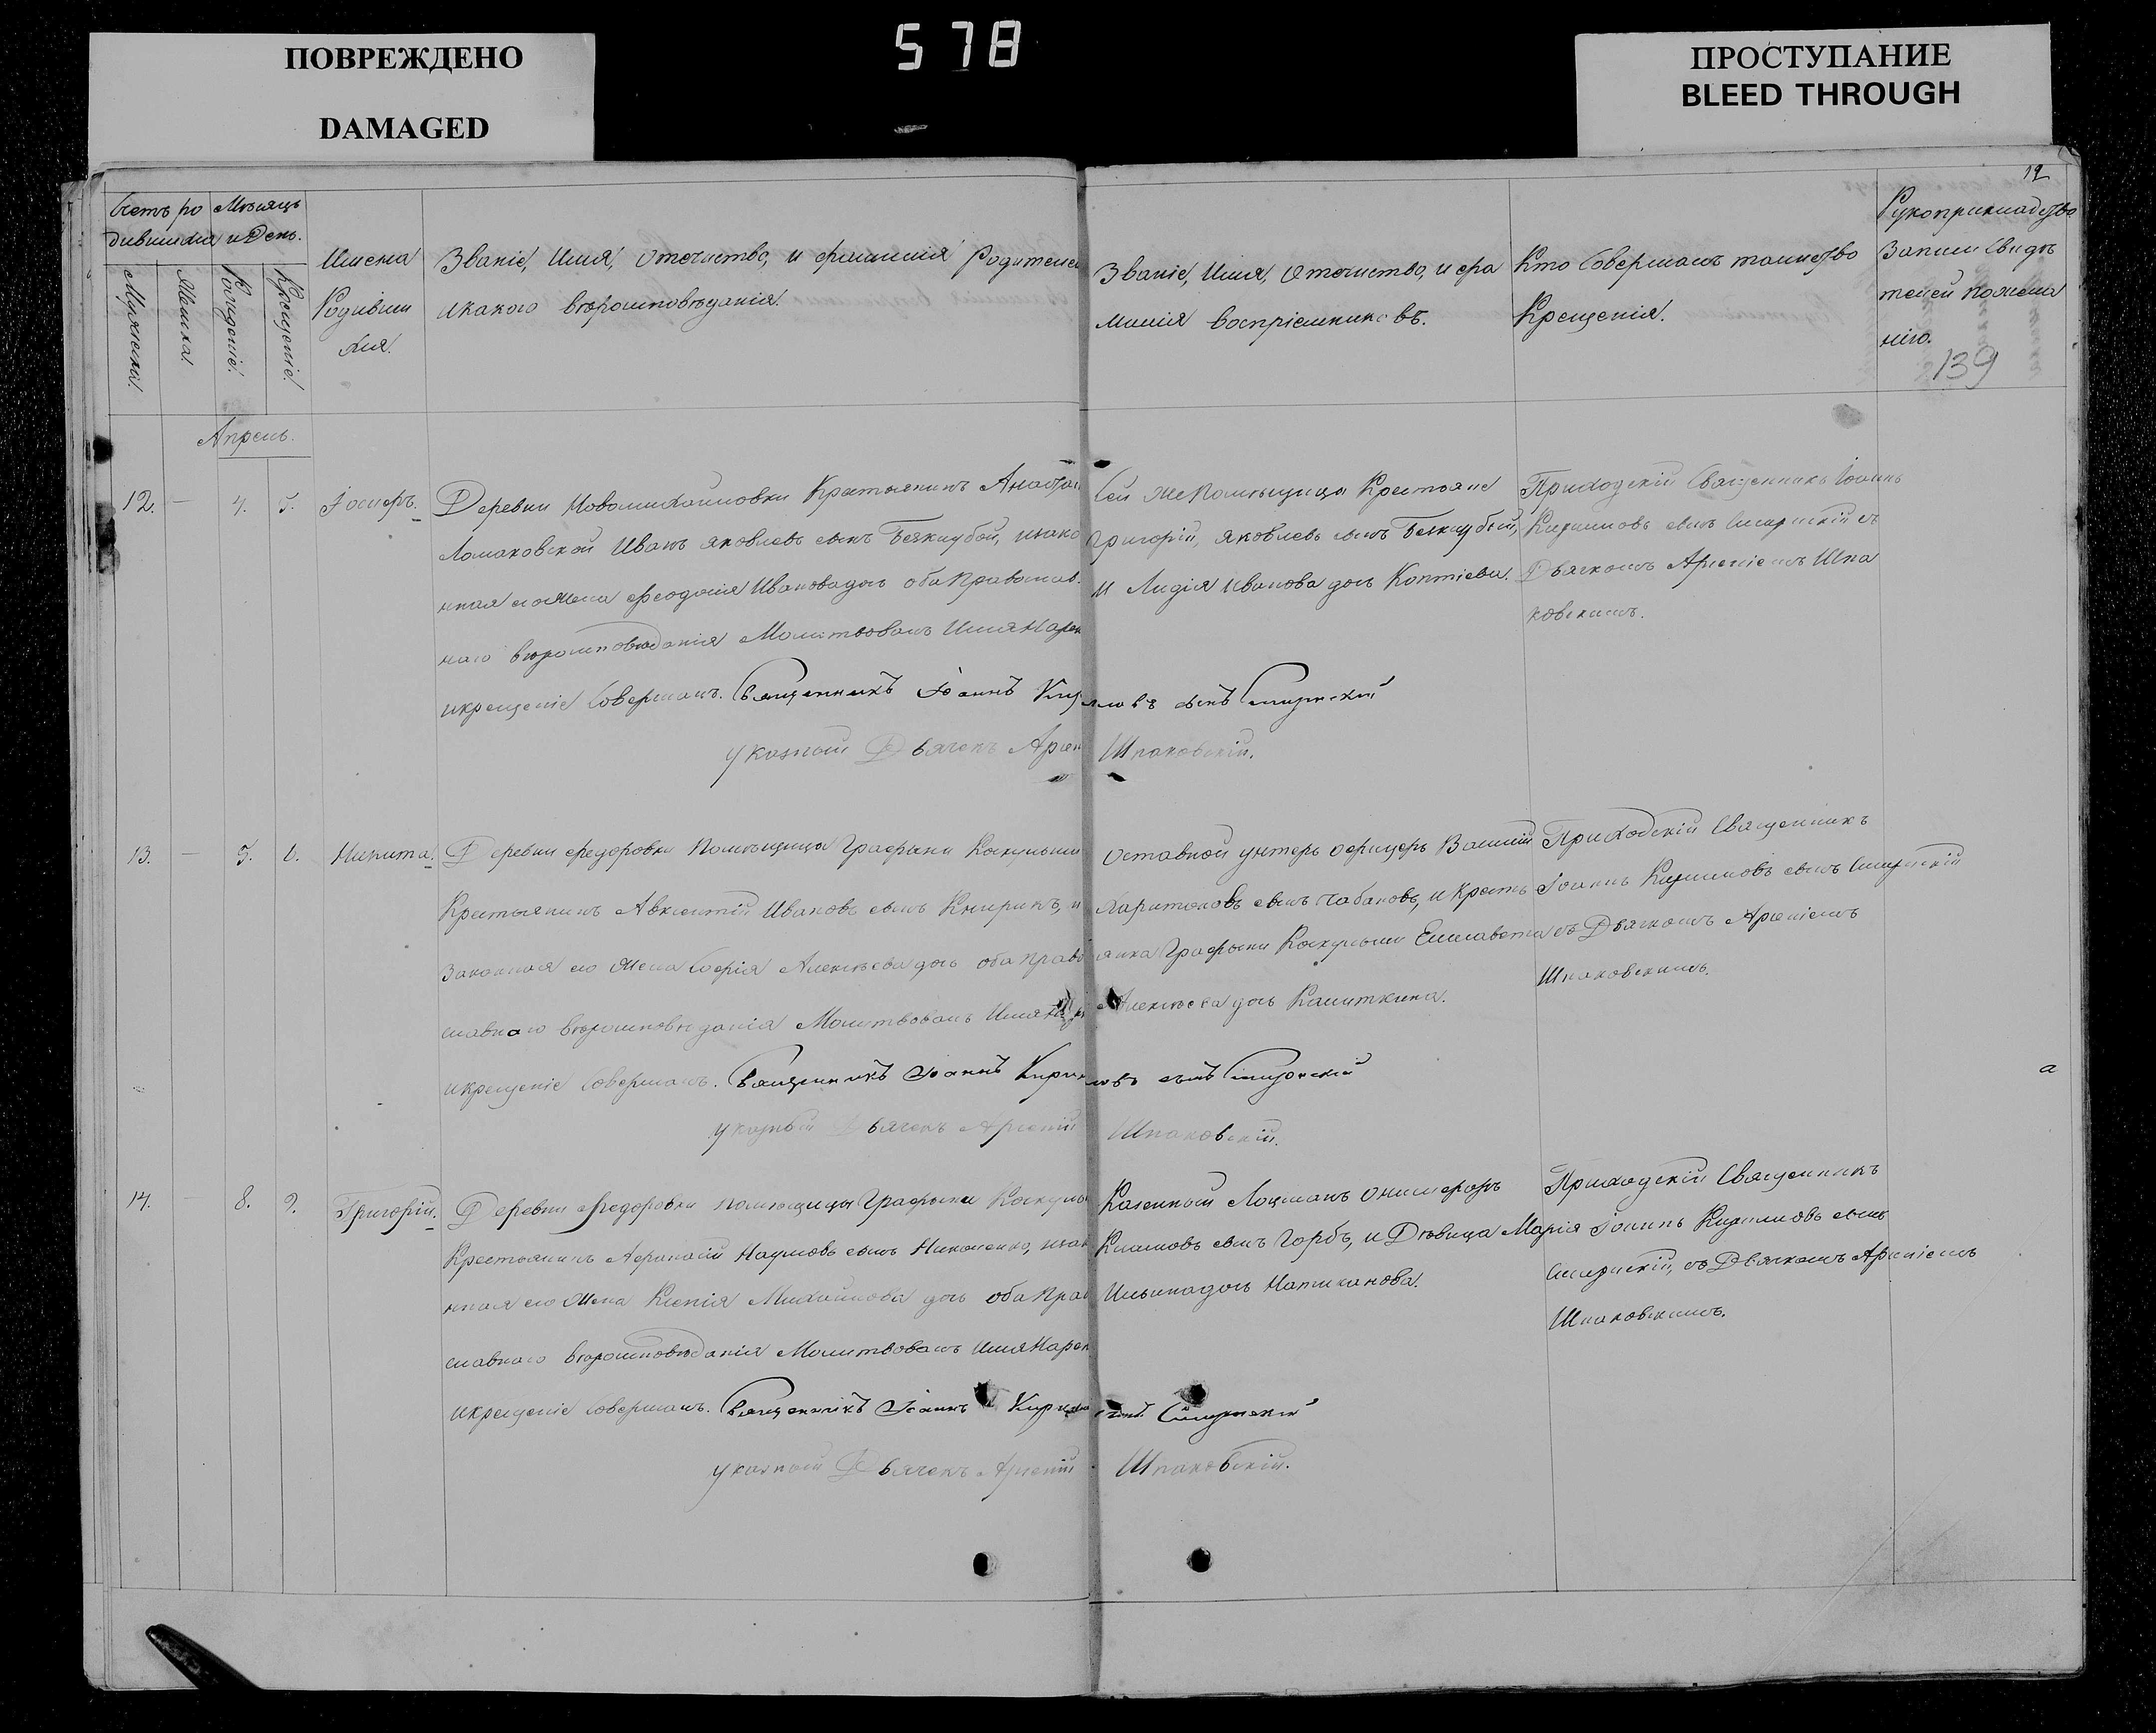 ПОВРЕЖДЕНО
DAMAGED
578
ПРОСТУПАНИЕ
BLEED THROUGH
12
139
Счетъ ро
дившихся
Мѣсяцъ
и День.
Мужескій.
Женска.
Рожденіе.
Крещеніе.
Имена
Родивши
хся.
Званіе, Имя, Отечество, и фамилія Родителей
икакого вѣроисповѣданія.
Званіе, Имя, Отечество, и фа
милія воспріемниковъ.
Кто Совершалъ таинство
Крещенія.
Рукоприкладство
Записи Свидѣ
телей пожела
нію.
Апрель.
12. — 4. 5. Іосифъ.
Деревни Новомихайловки Крестьянинъ
Ломаковской Иванъ Яковлевъ сынъ Беззубой, изако
нная его Жена Феодосія Иванова дочь оба Православ
наго вѣроисповѣданія Молитвовалъ Имя Нарек
икрещеніе Совершалъ. Священникъ Іоаннъ Кирилловъ сынъ
указной Дьячекъ Арсен Шпаковскій.
Сей же Помѣщицы Крестьяне
Григорій, Яковлевъ сынъ Беззубый,
и Лидія Иванова дочь Коптіева.
Приходскій Священникъ Іоаннъ
Кирилловъ сынъ съ
Дьячкомъ Арсеніемъ Шпа
ковскимъ.
13. — 5. 6. Никита.
Деревни Федоровки Помѣщицы Графини
Крестьянинъ Авксентій Ивановъ сынъ и
Законная его Жена Софія Алексѣева дочь оба Право
славнаго вѣроисповѣданія Молитвовалъ Имя
икрещеніе Совершалъ. Священникъ Іоаннъ Кирилловъ сынъ
указный Дьячекъ Арсеній Шпаковскій.
Оставной унтеръ офицеръ Василій
Харитоновъ сынъ Чабановъ, и Кресть
янка Графини Елисавета
Алексѣева дочь Калиткина.
Приходскій Священникъ
Іоаннъ Кирилловъ сынъ
съ Дьячкомъ Арсеніемъ
Шпаковскимъ.
а
14. — 8. 9. Григорій.
Деревни Федоровки помѣщицы Графини
Крестьянинъ Афанасій Наумовъ сынъ Николенко, изак
нная его Жена Ксенія Михайлова дочь оба Прав
славнаго вѣроисповѣданія Молитвовалъ Имя Нарек
икрещеніе Совершалъ. Священникъ Іоаннъ Кирилловъ сынъ
указной Дьячекъ Арсеній Шпаковскій.
Казенный Лоцманъ Онисифоръ
Климовъ сынъ Горбъ, и Дѣвица Марія
Ильина дочь
Приходскій Священникъ
Іоаннъ Кирилловъ сынъ
съ Дьячкомъ Арсеніемъ
Шпаковскимъ.